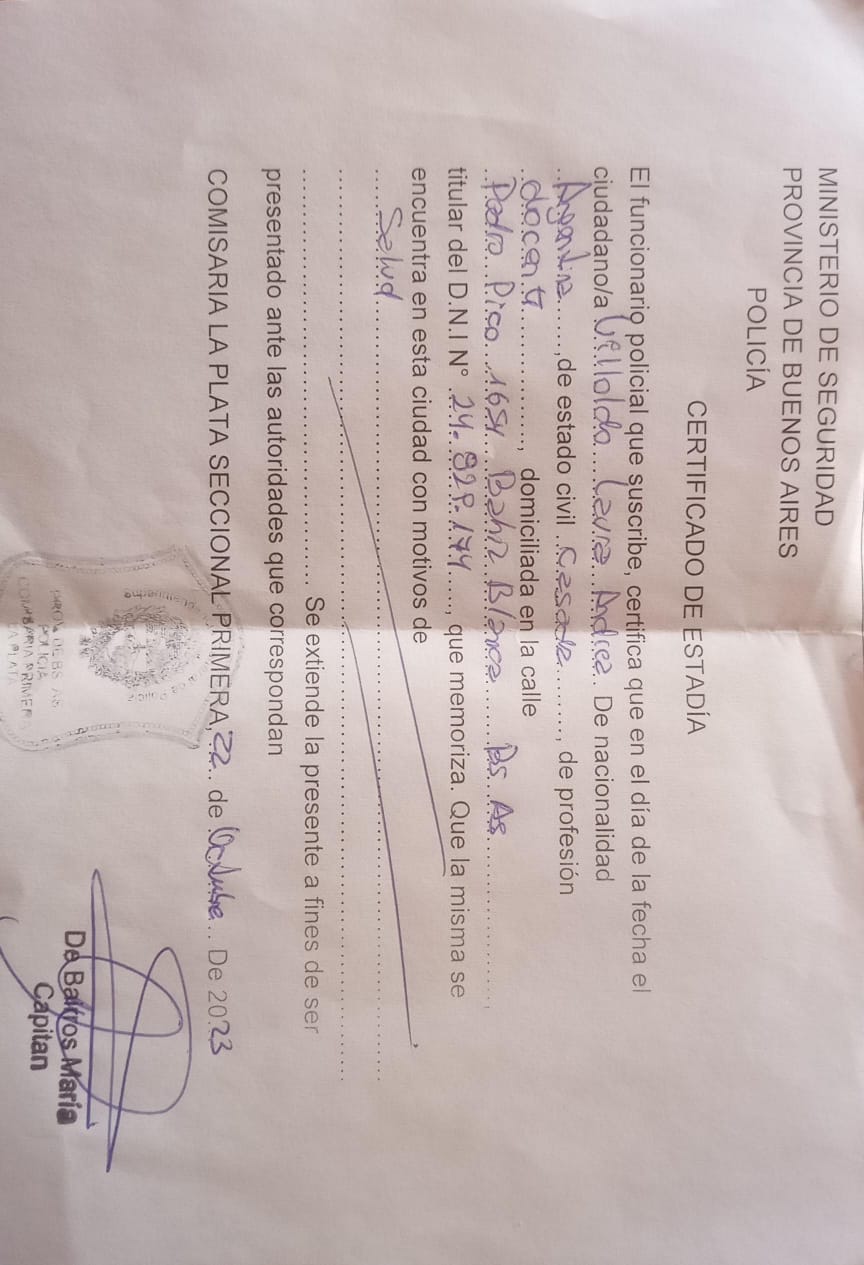 MINISTERIO DE SEGURIDAD
PROVINCIA DE BUENOS AIRES
POLICÍA
CERTIFICADO DE ESTADÍA
El funcionario policial que suscribe, certifica que en el día de la fecha el
ciudadano/a Laura De nacionalidad
Argentina, de estado civil Casada, de profesión
docente, domiciliada en la calle
Pedro Pico 1654 Bahia Blanca Bs As
titular del D.N.I Nº 24. , que memoriza. Que la misma se
encuentra en esta ciudad con motivos de
Salud
Se extiende la presente a fines de ser
presentado ante las autoridades que correspondan
COMISARIA LA PLATA SECCIONAL PRIMERA, 22 de Octubre De 2023
PROV. DE BS AS
POLICIA
COMISARIA PRIMERA
LA PLATA
De Barros María
Capitan